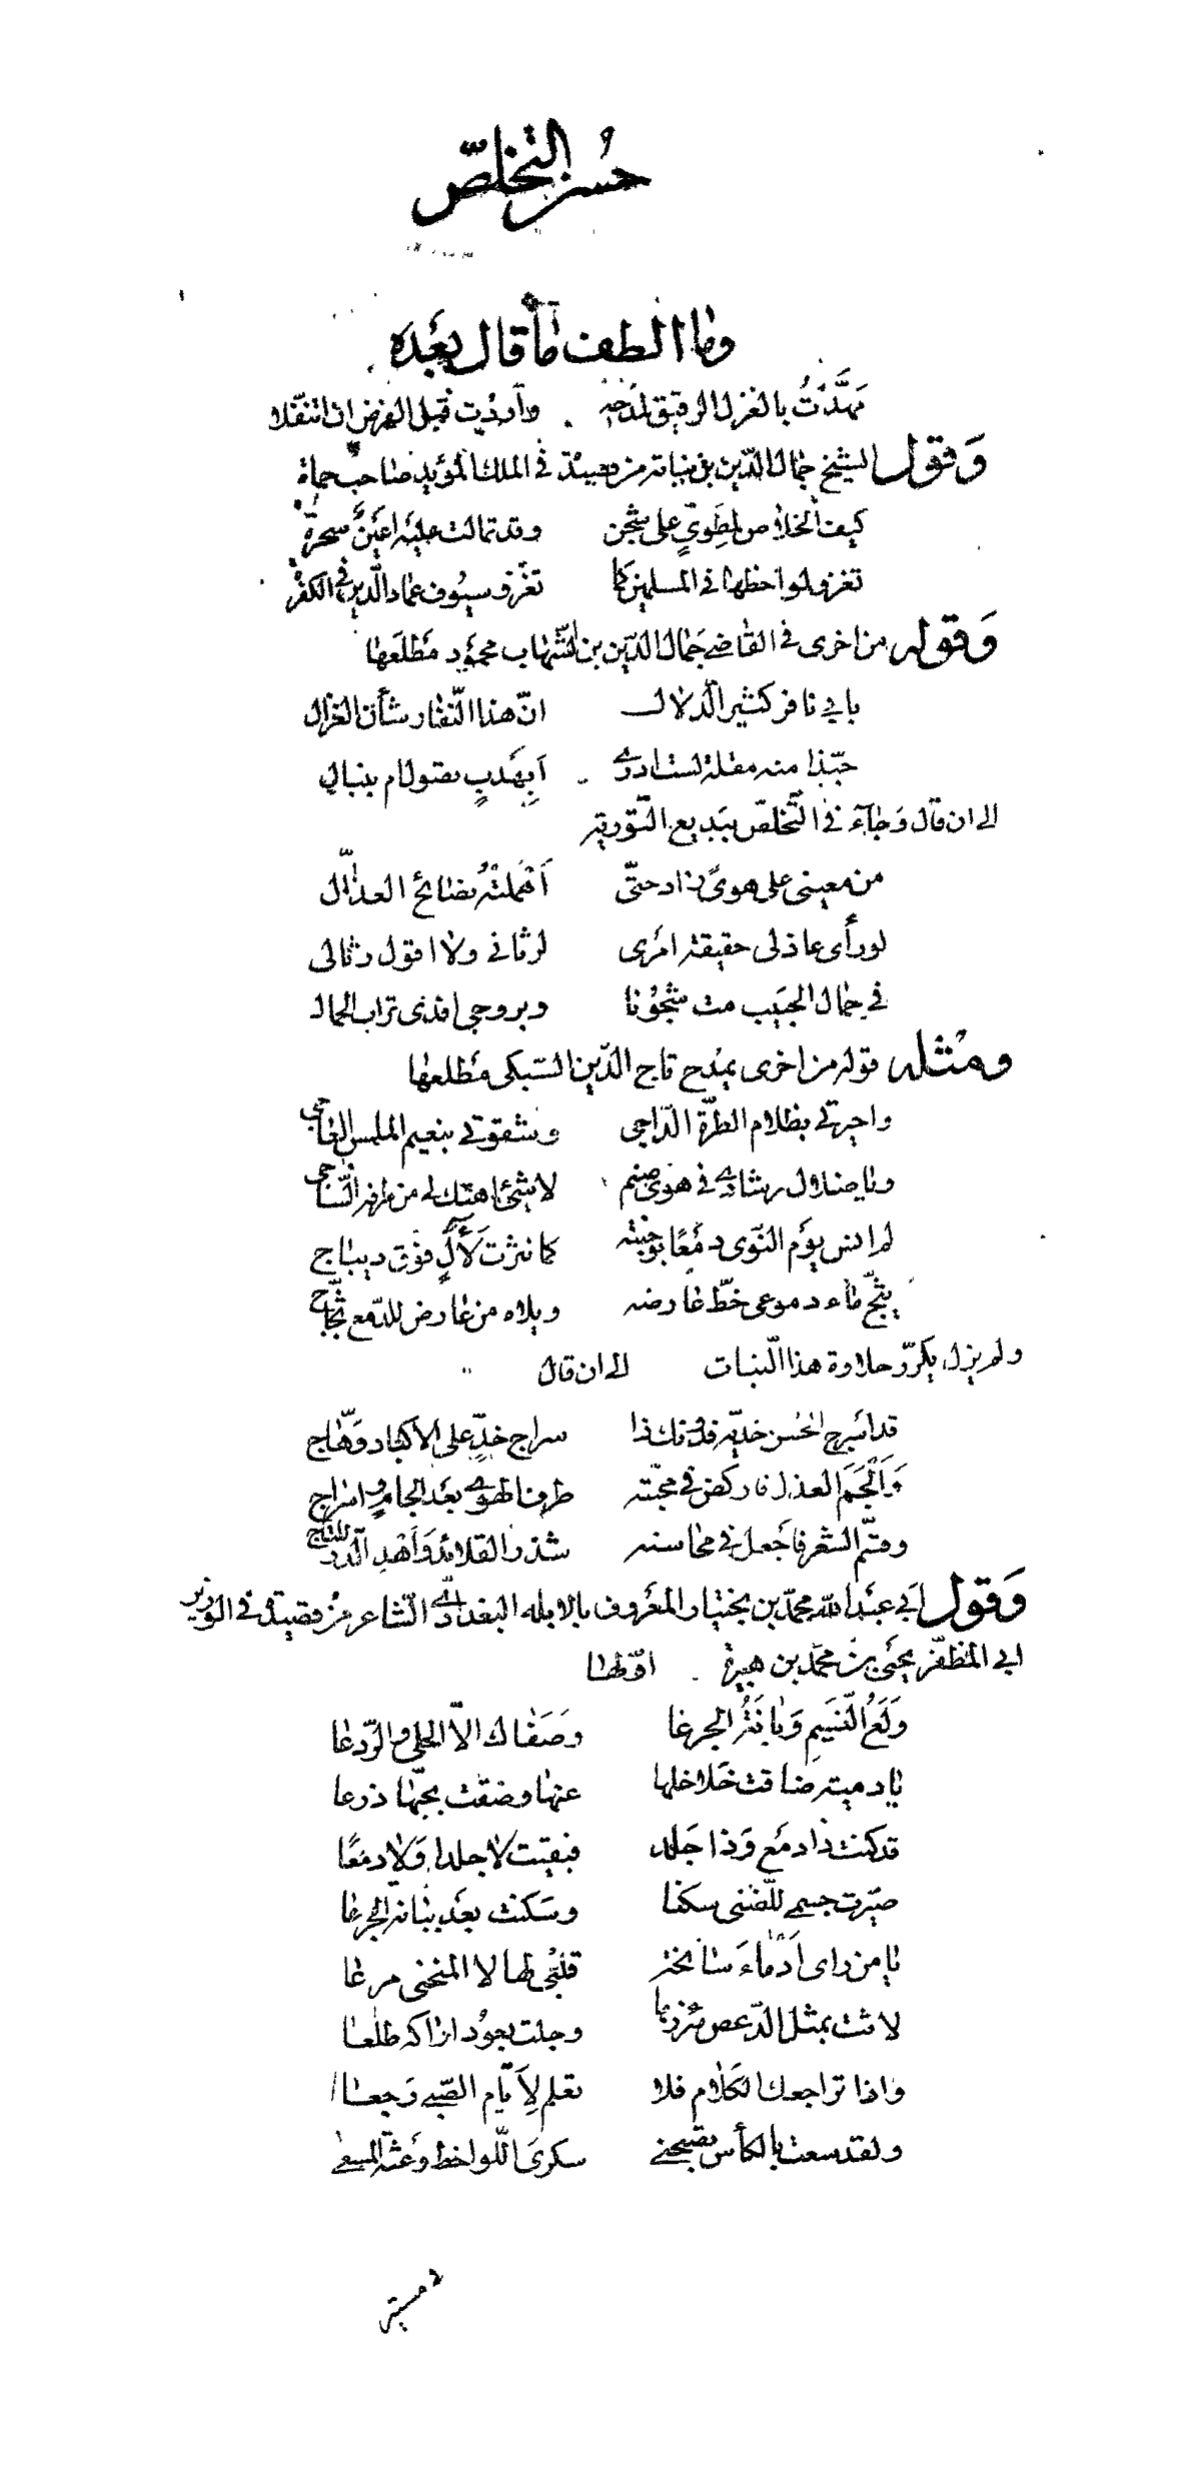 حسن التخلص
وما الطف ما قال بعده
مهَّدْتُ بالغزل الرقيق لمدحه وأردت قبل الفرض ان اتنفّلا
وَقول الشيخ جمال الدّين بن نباتة من قصيدة في الملك المؤيد صاحب حماة
كيف الخلاص لمطويٍّ على شجن وقد تمالت عليه اعينٌ سحرة
تغزو لواحظها في المسلمين كما تغزو سيوف عماد الدّين في الكفرة
وَقوله من اخرى في القاضي جمال الدّين بن الشّهاب محمود مطلعها
بابي نافر كثير الدّلال انّ هذا النّفار شأن الغزال
حبّذا منه مقلة لست ادري أبهدبٍ تصول ام بنبال
الى ان قال وَجاء في التّخلص ببَديع التّورية
من معيني على هوىً زاد حتّى أفحمتهُ نصائح العذّال
لو رأى عاذلي حقيقة امرى لرثاني ولا اقول رثالى
في جمال الحبيب مت شجوْنا وبروحي افدى تراب الجمال
ومثله قوله من اخرى يمدح تاج الدّين السّبكى مَطلعها
واحيرتي بظلام الطرّة الدّاجي وشقوتي بنعيم الملمس العاجي
ويا ضلال رشادي في هوى صنم لا شئ اهتك لي من طرفه السّاجي
لم انس يوْم النّوى دمعًا بوجنته كما نثرت لآلٍ فوق ديباج
يثجّ ماء دموعي خطّ عارضه ويلاه من عارض للدّمع ثجّاج
ولم يزل يكرّر حلاوة هذا النّبات الى ان قال
قد اسْرج الحُسن خدّيه فدونك ذا سراج خدٍّ على الاكباد وَهّاج
وَأَلْجَمَ العذل فاركض في محبّته طرف الهوى بعد الجام واسراج
وقسّم الشعر فاجعل في محاسنه شذر القلائد وَاهْدِ الدّرّ للتاج
وَقول ابي عبد الله محمّد بن بختيار المعْروف بالابله البغدادي الشاعر من قصيدة في الوزير
ابي المظفّر يحيى بن محمّد بن هبيرة اوّلها
وَلَعُ النّسيم وَبانَةُ الجرعا وصَفاك الاّ الحلي والرّدعا
يا دمية ضاقت خَلاخلها عنها وضقت بحبّها ذرعا
قد كنت ذا دمْع وَذا جَلد فبقيت لا جلدا وَلا دمعًا
صيّرت جسمي للضّنى سكنا وسَكنت بعْد بنانة الجرعا
يا من راى أدْماءَ سانحة قلبْي لها لا المنحنى مرعا
لاثت بمثل الدّعص مئزرها وجلت بعوُد اراكه طلعا
واذا تراجعك الكلام فلا تعلم لأيّام الصّبى رَجعا
ولقد سعت بالكأس تصبحني سكرى اللّواحظ وعثة المسعى